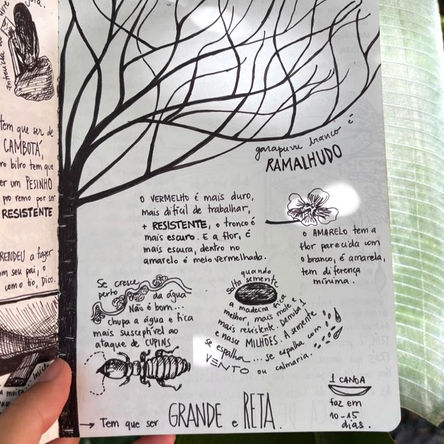 tem que ser de
CAMBOTÁ,
ro bilro tem que
er um PESINHO
pro remo por ser
RESISTENTE
RENDEU a fazer
m seu pai, o
com o tio, Dico.
garapuvu branco é
RAMALHUDO
O VERMELHO é mais duro,
mais difícil de trabalhar,
+ RESISTENTE, o tronco é
mais escuro. E a flor, é
mais escura, dentro no
amarelo é meio vermelhada.
O AMARELO tem a
flor parecida com
o branco, é amarela,
tem diferença
mínima.
Se cresce
perto
da água
Não é bom...
chupa a água e fica
mais susceptível ao
ataque de CUPINS
quando
bota semente
a madeira fica
melhor, mais mole e
mais resistente. Derruba 1
nasce MILHÕES. A semente
se espalha... se espalha com
VENTO ou calmaria.
1 CANOA
faz em
10-15
dias.
→ Tem que ser GRANDE e RETA.